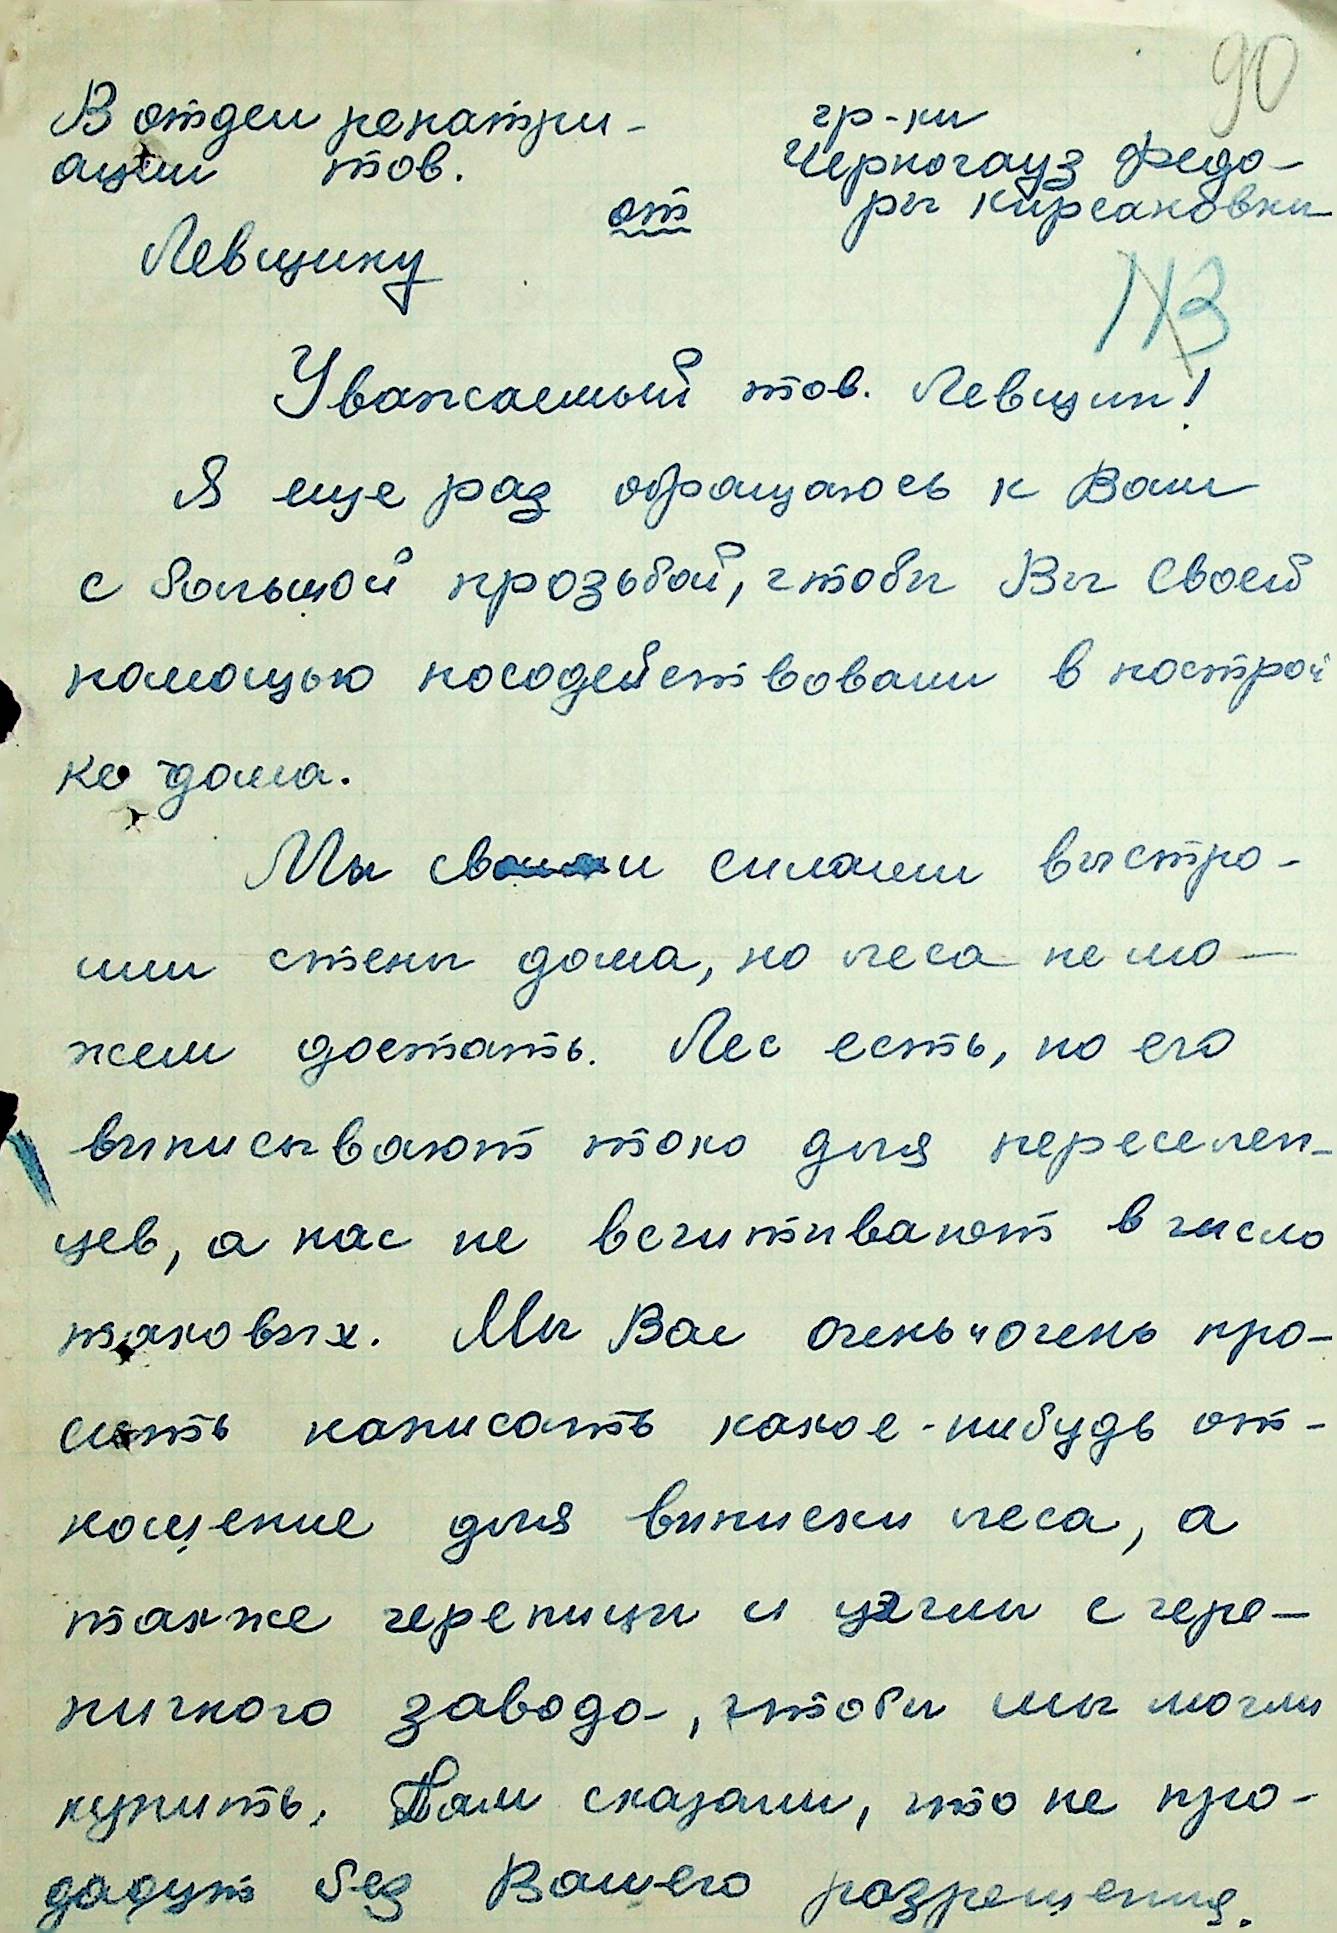 90
В отдел репатри- гр-ки
ации тов. Черногауз Федо-
от ры Кирсановны
Левщину
Уважаемый тов. Левщин!
Я еще раз обращаюсь к Вам
с большой прозьбой, чтобы Вы своей
помощью посодействовали в построй
ке дома.
Мы своими силами выстро-
или стены дома, но леса не мо-
жем достать. Лес есть, но его
виписывают токо для переселен-
цев, а нас не всчитивают в число
таковых. Мы Вас очень очень про-
сить написать какое-нибудь от-
ношение для виписки леса, а
также черепици и цегли с чере-
пичного завода, чтоби мы могли
купить. Там сказали, что не про-
дадут без Вашего разрешения.